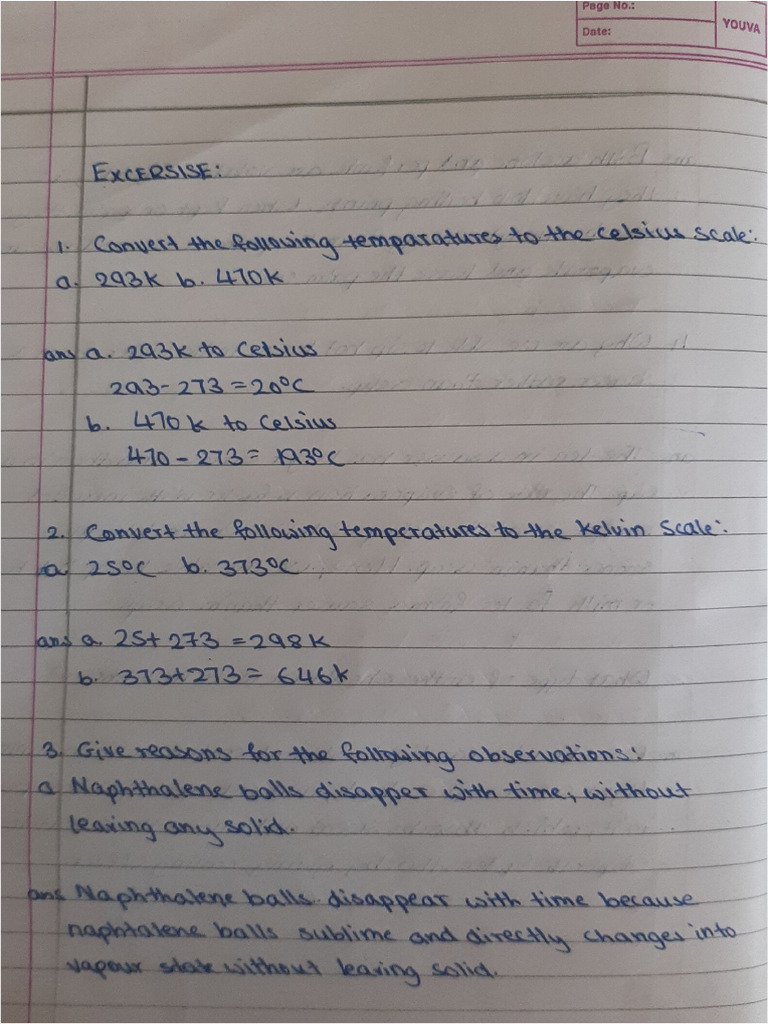 Page No.:
Date:
YOUVA
EXCERSISE:
1. Convert the following temparatures to the celsius scale:
a. 293K b. 470K
ans a. 293K to Celsius
293-273=20°C
b. 470K to Celsius
470-273= 193°C
2. Convert the following temperatures to the Kelvin Scale:
a 25°C b. 373°C
ans a. 25+273 =298K
b. 373+273= 646K
3. Give reasons for the following observations:
a Naphthalene balls disapper with time, without
leaving any solid.
ans Naphthalene balls disappear with time because
naphtalene balls sublime and directly changes into
vapour state without leaving solid.